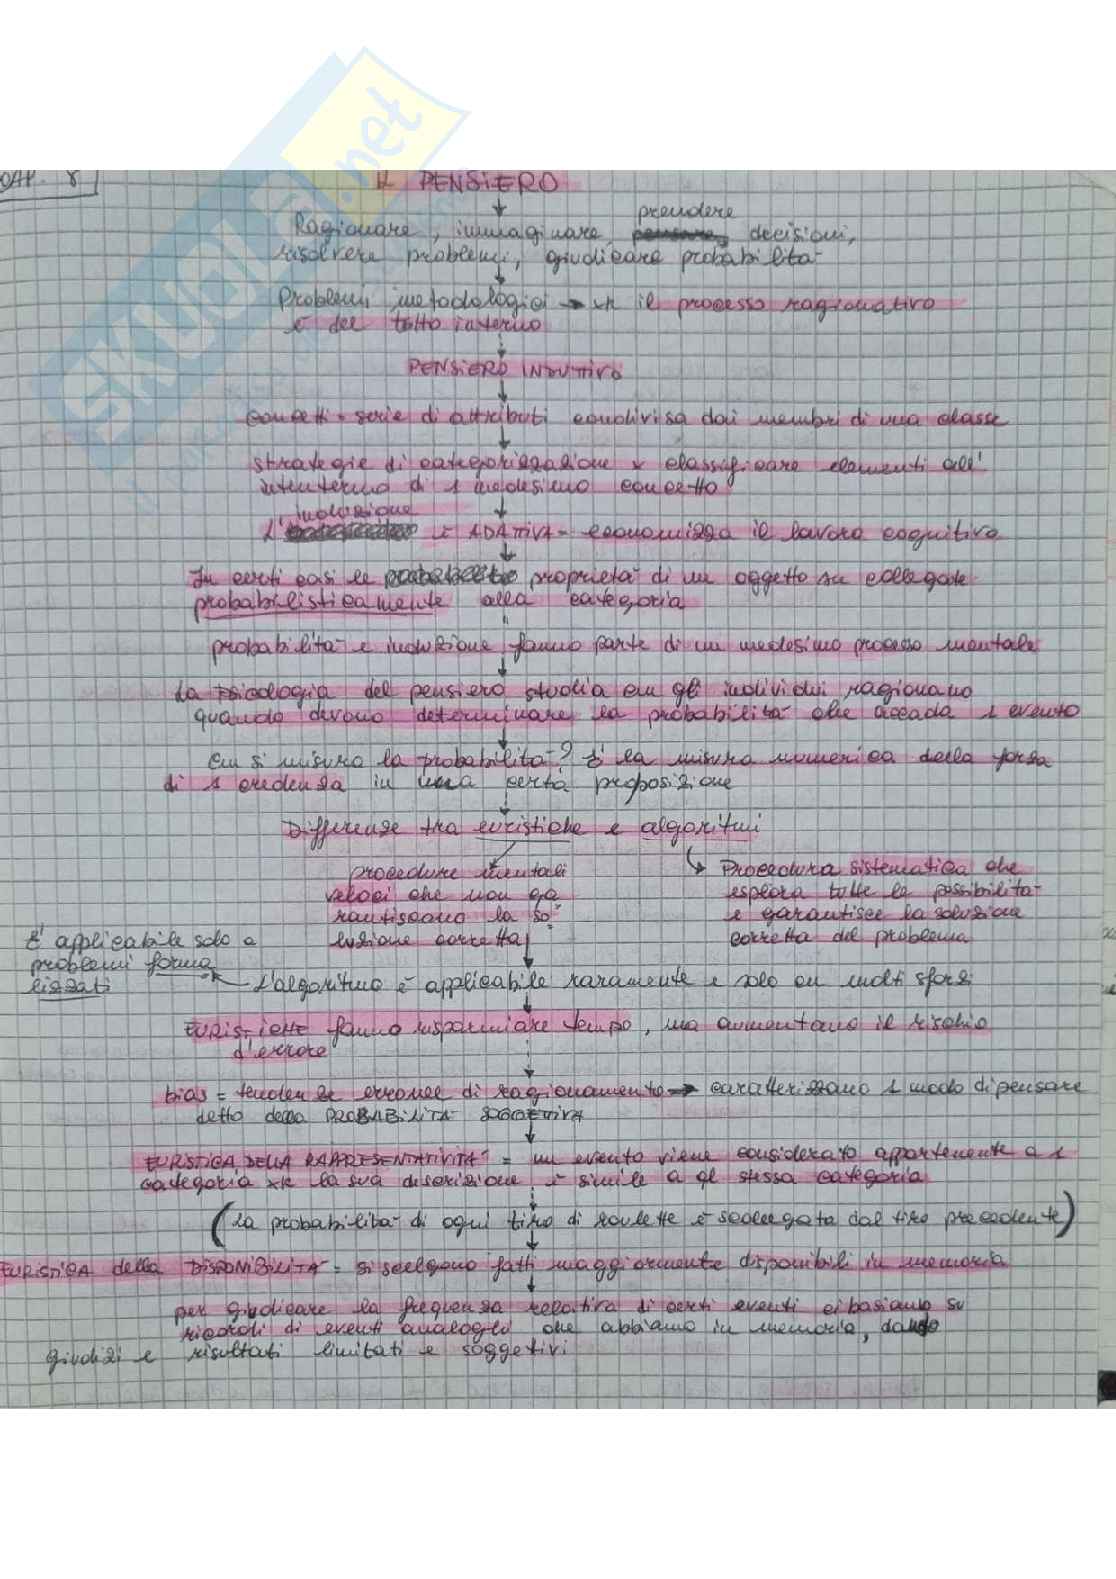 CAP. 8
IL PENSIERO
prendere
Ragionare, immaginare, decisioni,
risolvere problemi, giudicare probabilità
Problemi metodologici → xk il processo ragionativo
è del tutto interno
PENSIERO INDUTTIVO
Concetti = serie di attributi condivisa dai membri di una classe
strategie di categorizzazione x classificare elementi all'
di 1 medesimo concetto
induzione
L' è ADATTIVA = economizza il lavoro cognitivo
In certi casi le proprietà di un oggetto collegate
probabilisticamente alla categoria
probabilità e induzione fanno parte di un medesimo processo mentale
La psicologia del pensiero studia cm gli individui ragionano
quando devono determinare la probabilità che accada 1 evento
Cm si misura la probabilità? È la misura numerica della forza
di 1 credenza in una certa proposizione
Differenze tra euristiche e algoritmi
procedure mentali
veloci che non ga
rantiscono la so
luzione corretta
Procedura sistematica che
esplora tutte le possibilità
e garantisce la soluzione
corretta del problema
È applicabile solo a
problemi forma
lizzati
L'algoritmo è applicabile raramente e solo cn molti sforzi
EURISTICHE fanno risparmiare tempo, ma aumentano il rischio
d'errore
bias = tendenze erronee di ragionamento → caratterizzano 1 modo di pensare
detto della PROBABILITÀ SOGGETTIVA
EURISTICA DELLA RAPPRESENTATIVITÀ = un evento viene considerato appartenente a 1
categoria xk la sua descrizione è simile a ql stessa categoria
(la probabilità di ogni tiro di roulette è scollegata dal tiro precedente)
EURISTICA della DISPONIBILITÀ = si scelgono fatti maggiormente disponibili in memoria
per giudicare la frequenza relativa di certi eventi ci basiamo su
ricordi di eventi analoghi che abbiamo in memoria, dando
giudizi e risultati limitati e soggettivi
SKUOLA.net